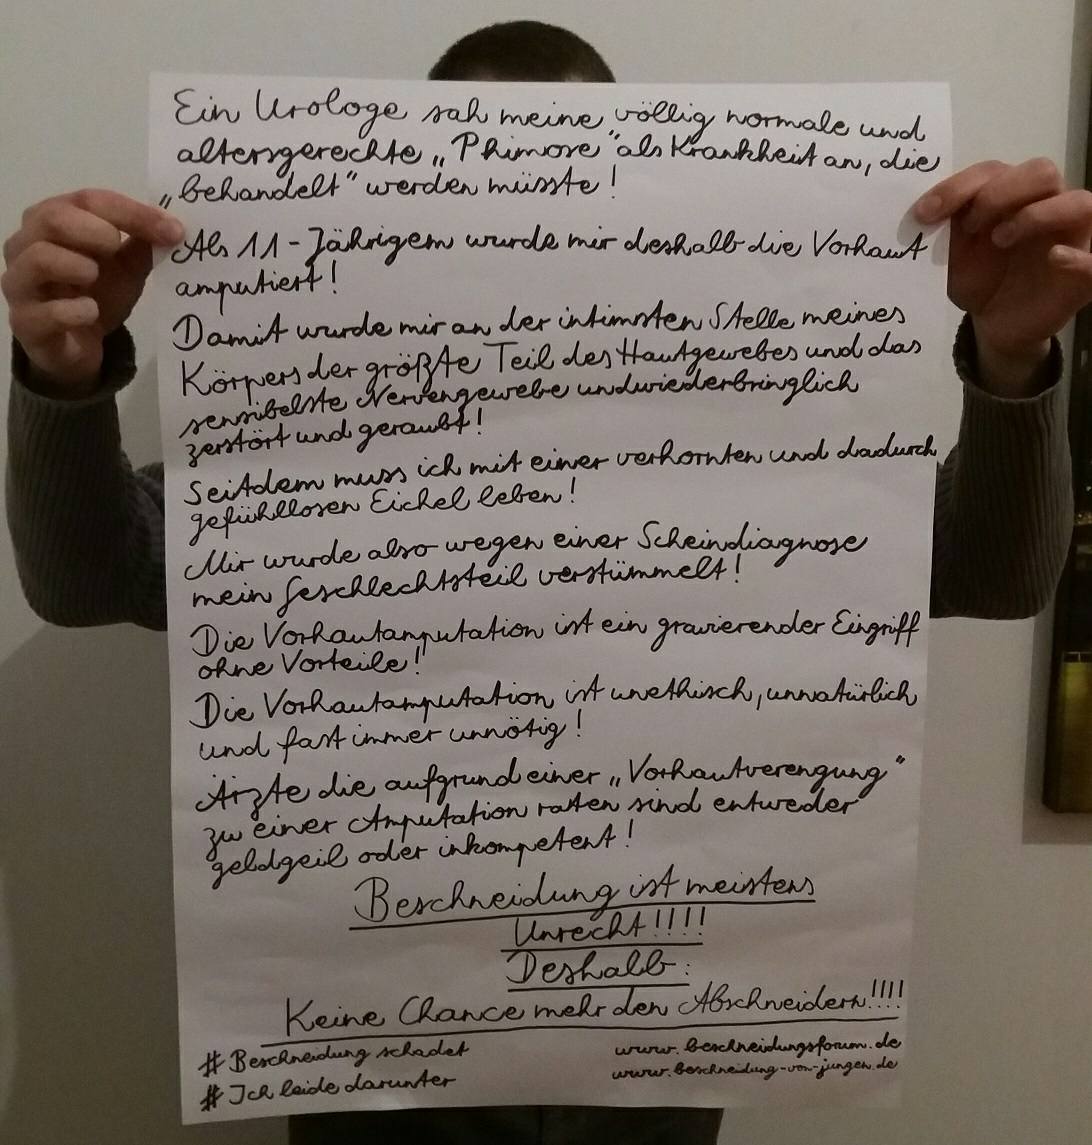 Ein Urologe sah meine völlig normale und
altersgerechte „Phimose" als Krankheit an, die
„behandelt" werden müsste!
Als 11-Jährigem wurde mir deshalb die Vorhaut
amputiert!
Damit wurde mir an der intimsten Stelle meines
Körpers der größte Teil des Hautgewebes und das
sensibelste Nervengewebe undwiederbringlich
zerstört und geraubt!
Seitdem muss ich mit einer verhornten und dadurch
gefühllosen Eichel leben!
Mir wurde also wegen einer Scheindiagnose
mein Geschlechtsteil verstümmelt!
Die Vorhautamputation ist ein gravierender Eingriff
ohne Vorteile!
Die Vorhautamputation ist unethisch, unnatürlich
und fast immer unnötig!
Ärzte die aufgrund einer „Vorhautverengung"
zu einer Amputation raten sind entweder
geldgeil oder inkompetent!
Beschneidung ist meistens
Unrecht!!!!
Deshalb:
Keine Chance mehr den Abschneidern!!!!
#Beschneidung schadet
www.beschneidungsforum.de
#Ich leide darunter
www.beschneidung-von-jungen.de